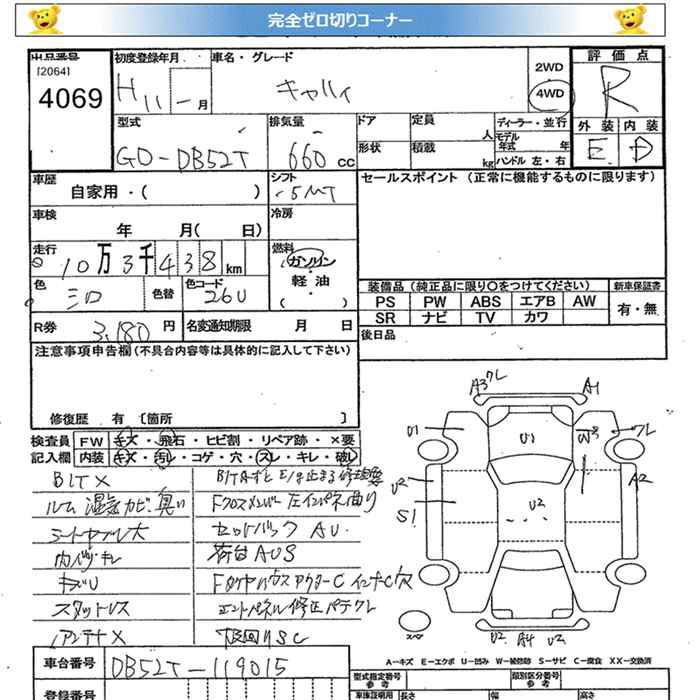 完全ゼロ切りコーナー
出品番号
[2064]
4069
初度登録年月
H11 - 月
車名・グレード
キャリイ
2WD
4WD
評価点
R
外装 内装
E D
型式
GD-DB52T
排気量
660 cc
ドア
定員
人
形状
積載
kg
ディーラー・並行
モデル年式 年
ハンドル 左・右
車歴
自家用・( )
シフト
5MT
セールスポイント (正常に機能するものに限ります)
車検
年 月( 日)
冷房
走行
10万3千438km
燃料
ガソリン・軽油・( )
色
シロ
色替
色コード
26U
装備品 (純正品に限り○をつけてください)
新車保証書
PS PW ABS エアB AW
有・無
SR ナビ TV カワ
R券
3,180 円
名変通知期限 月 日
後日品
注意事項申告欄 (不具合内容等は具体的に記入して下さい)
修復歴 有 [箇所 ]
検査員記入欄
FW キズ・飛石・ヒビ割・リペア跡・×要
内装 キズ・汚レ・コゲ・穴・スレ・キレ・破レ
ルム 湿気カビ臭い
シートヤブレ大
キズU
スタットレス
アンテナX
Fクロスメンバー 左インパネ曲り
セットバック AU
荷台AUS
エンドパネル修正パテクレ
下回りSC
A3
クレ
A1
U1
U1
W3
クレ
U2
S1
U2
A2
スペア
U2 A4 U2
A-キズ E-エクボ U-凹み W-補修跡 S-サビ C-腐食 XX-交換済
車台番号
DB52T-119015
登録番号
型式指定番号
参考
類別区分番号
参考
車庫証明用
長さ
幅
高さ